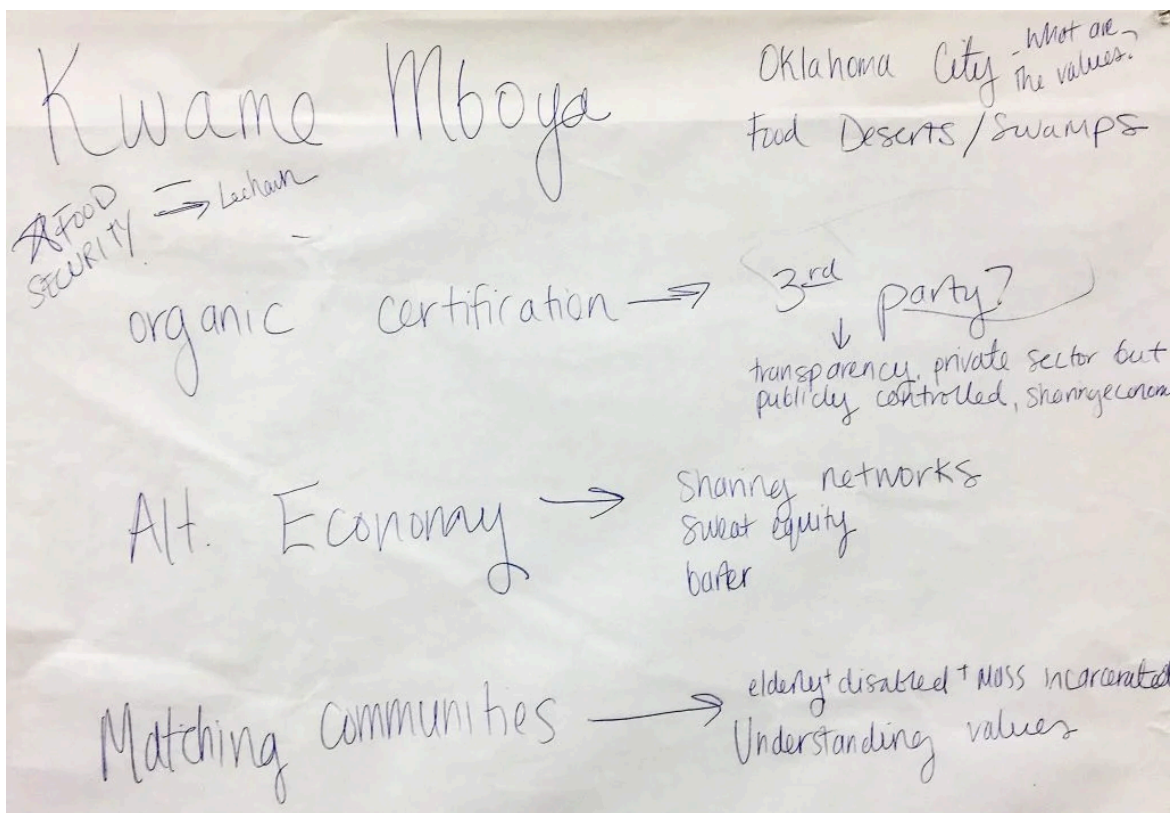 Kwame Mboya
Oklahoma City - What are
the values?
Food Deserts/Swamps
FOOD
SECURITY
organic certification → 3rd party?
transparency, private sector but
publicly controlled, sharing econom
Alt. Economy → Sharing networks
Sweat equity
barter
Matching communities → elderly + disabled + Mass incarcerated
Understanding values